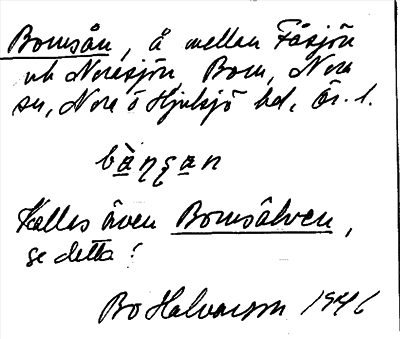 Bornsån, å mellan Fåsjön
och Norasjön, Born, Nora
sn, Nora o Hjulsjö hd, Ör. l.
Kallas även Bornsälven,
se detta!
Bo Halvarson 1946